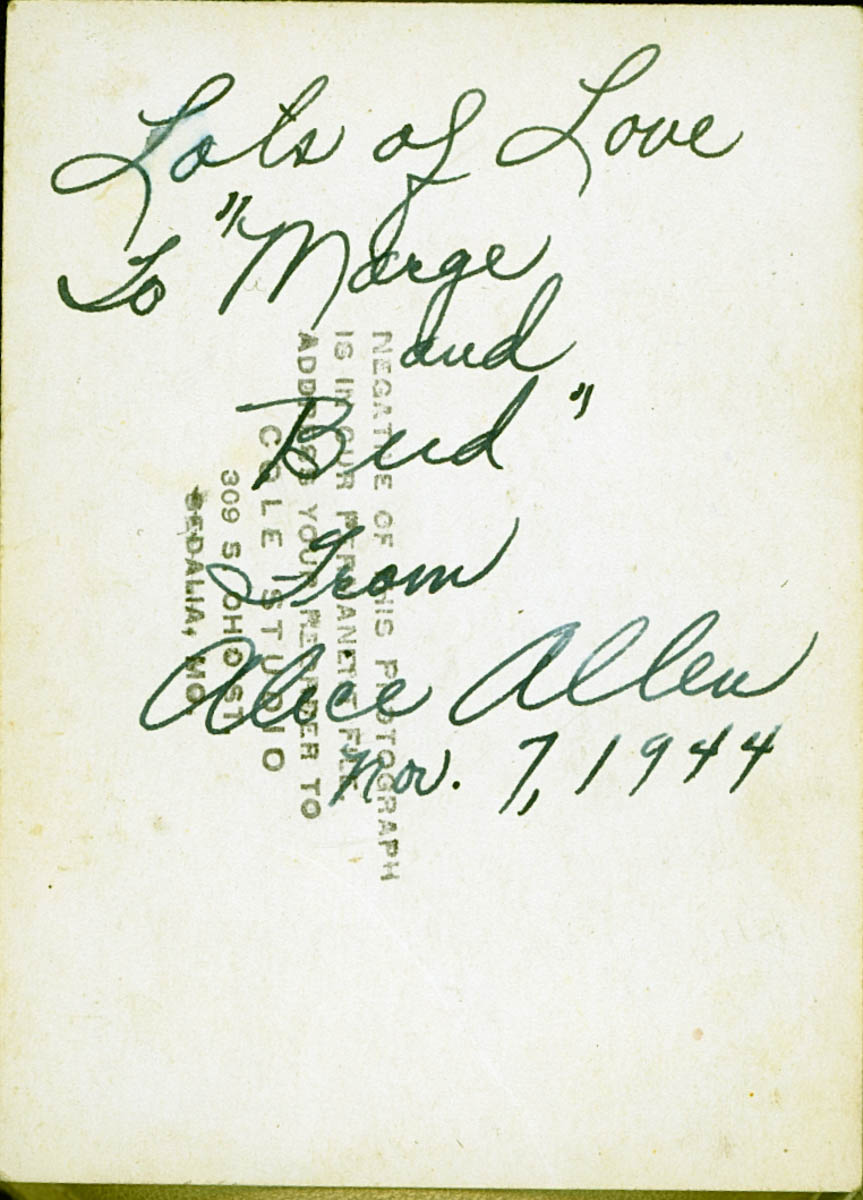 Lots of Love
To "Marge
and
Bud"
From
Alice Allen
Nov. 7, 1944
NEGATIVE OF THIS PHOTOGRAPH
IS IN OUR PERMANENT FILE
ADDRESS YOUR REORDER TO
COLE STUDIO
309 S. OHIO ST
SEDALIA, MO.